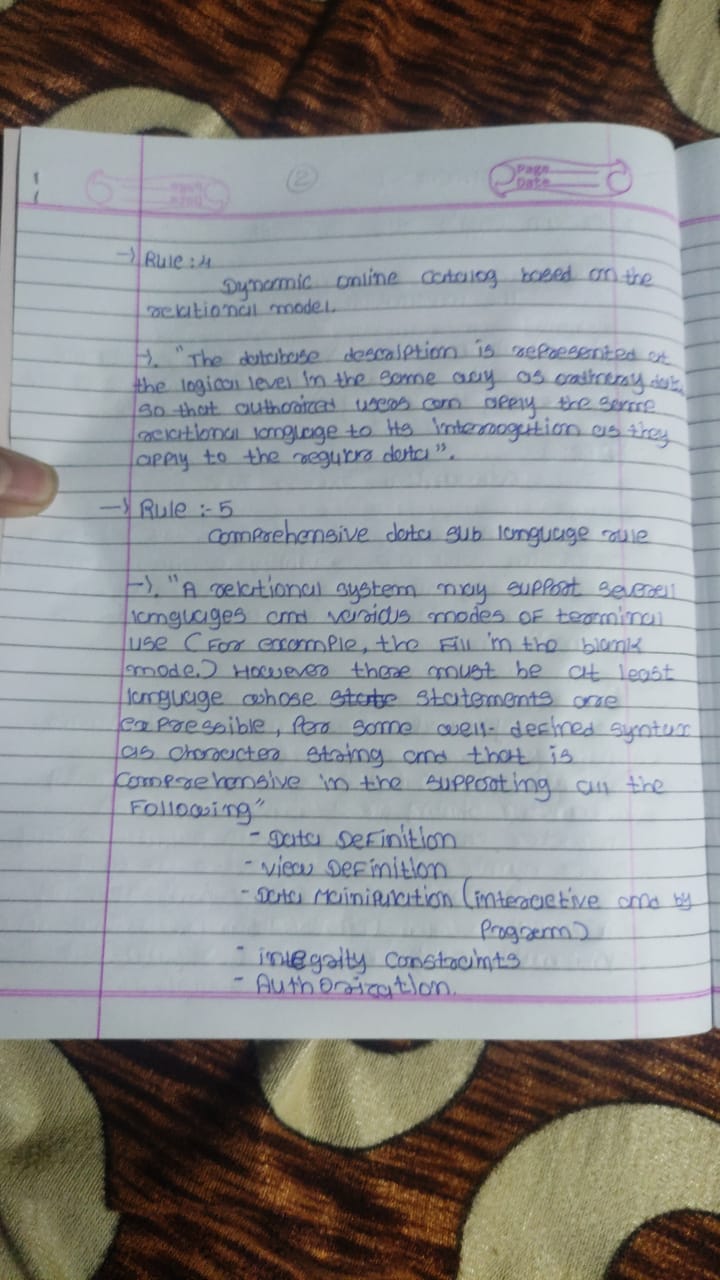 ②
Page
Date
→ Rule : 4
Dynamic online catalog based on the
relational model.
→. "The database description is represented at
the logical level in the same way as ordinary data,
so that authorized users can apply the same
relational language to its interrogation as they
apply to the regular data".
→ Rule :- 5
comprehensive data sub language rule
→. "A relational system may support several
languages and various modes of terminal
use (For example, the Fill in the blank
mode.) However there must be at least
language whose state statements are
expressible, per some well-defined syntax
as character string and that is
comprehensive in the supporting all the
Following"
- Data Definition
- View Definition
- Data Mainipulation (interactive and by
Program)
- integrity Constraints
- Authorization.